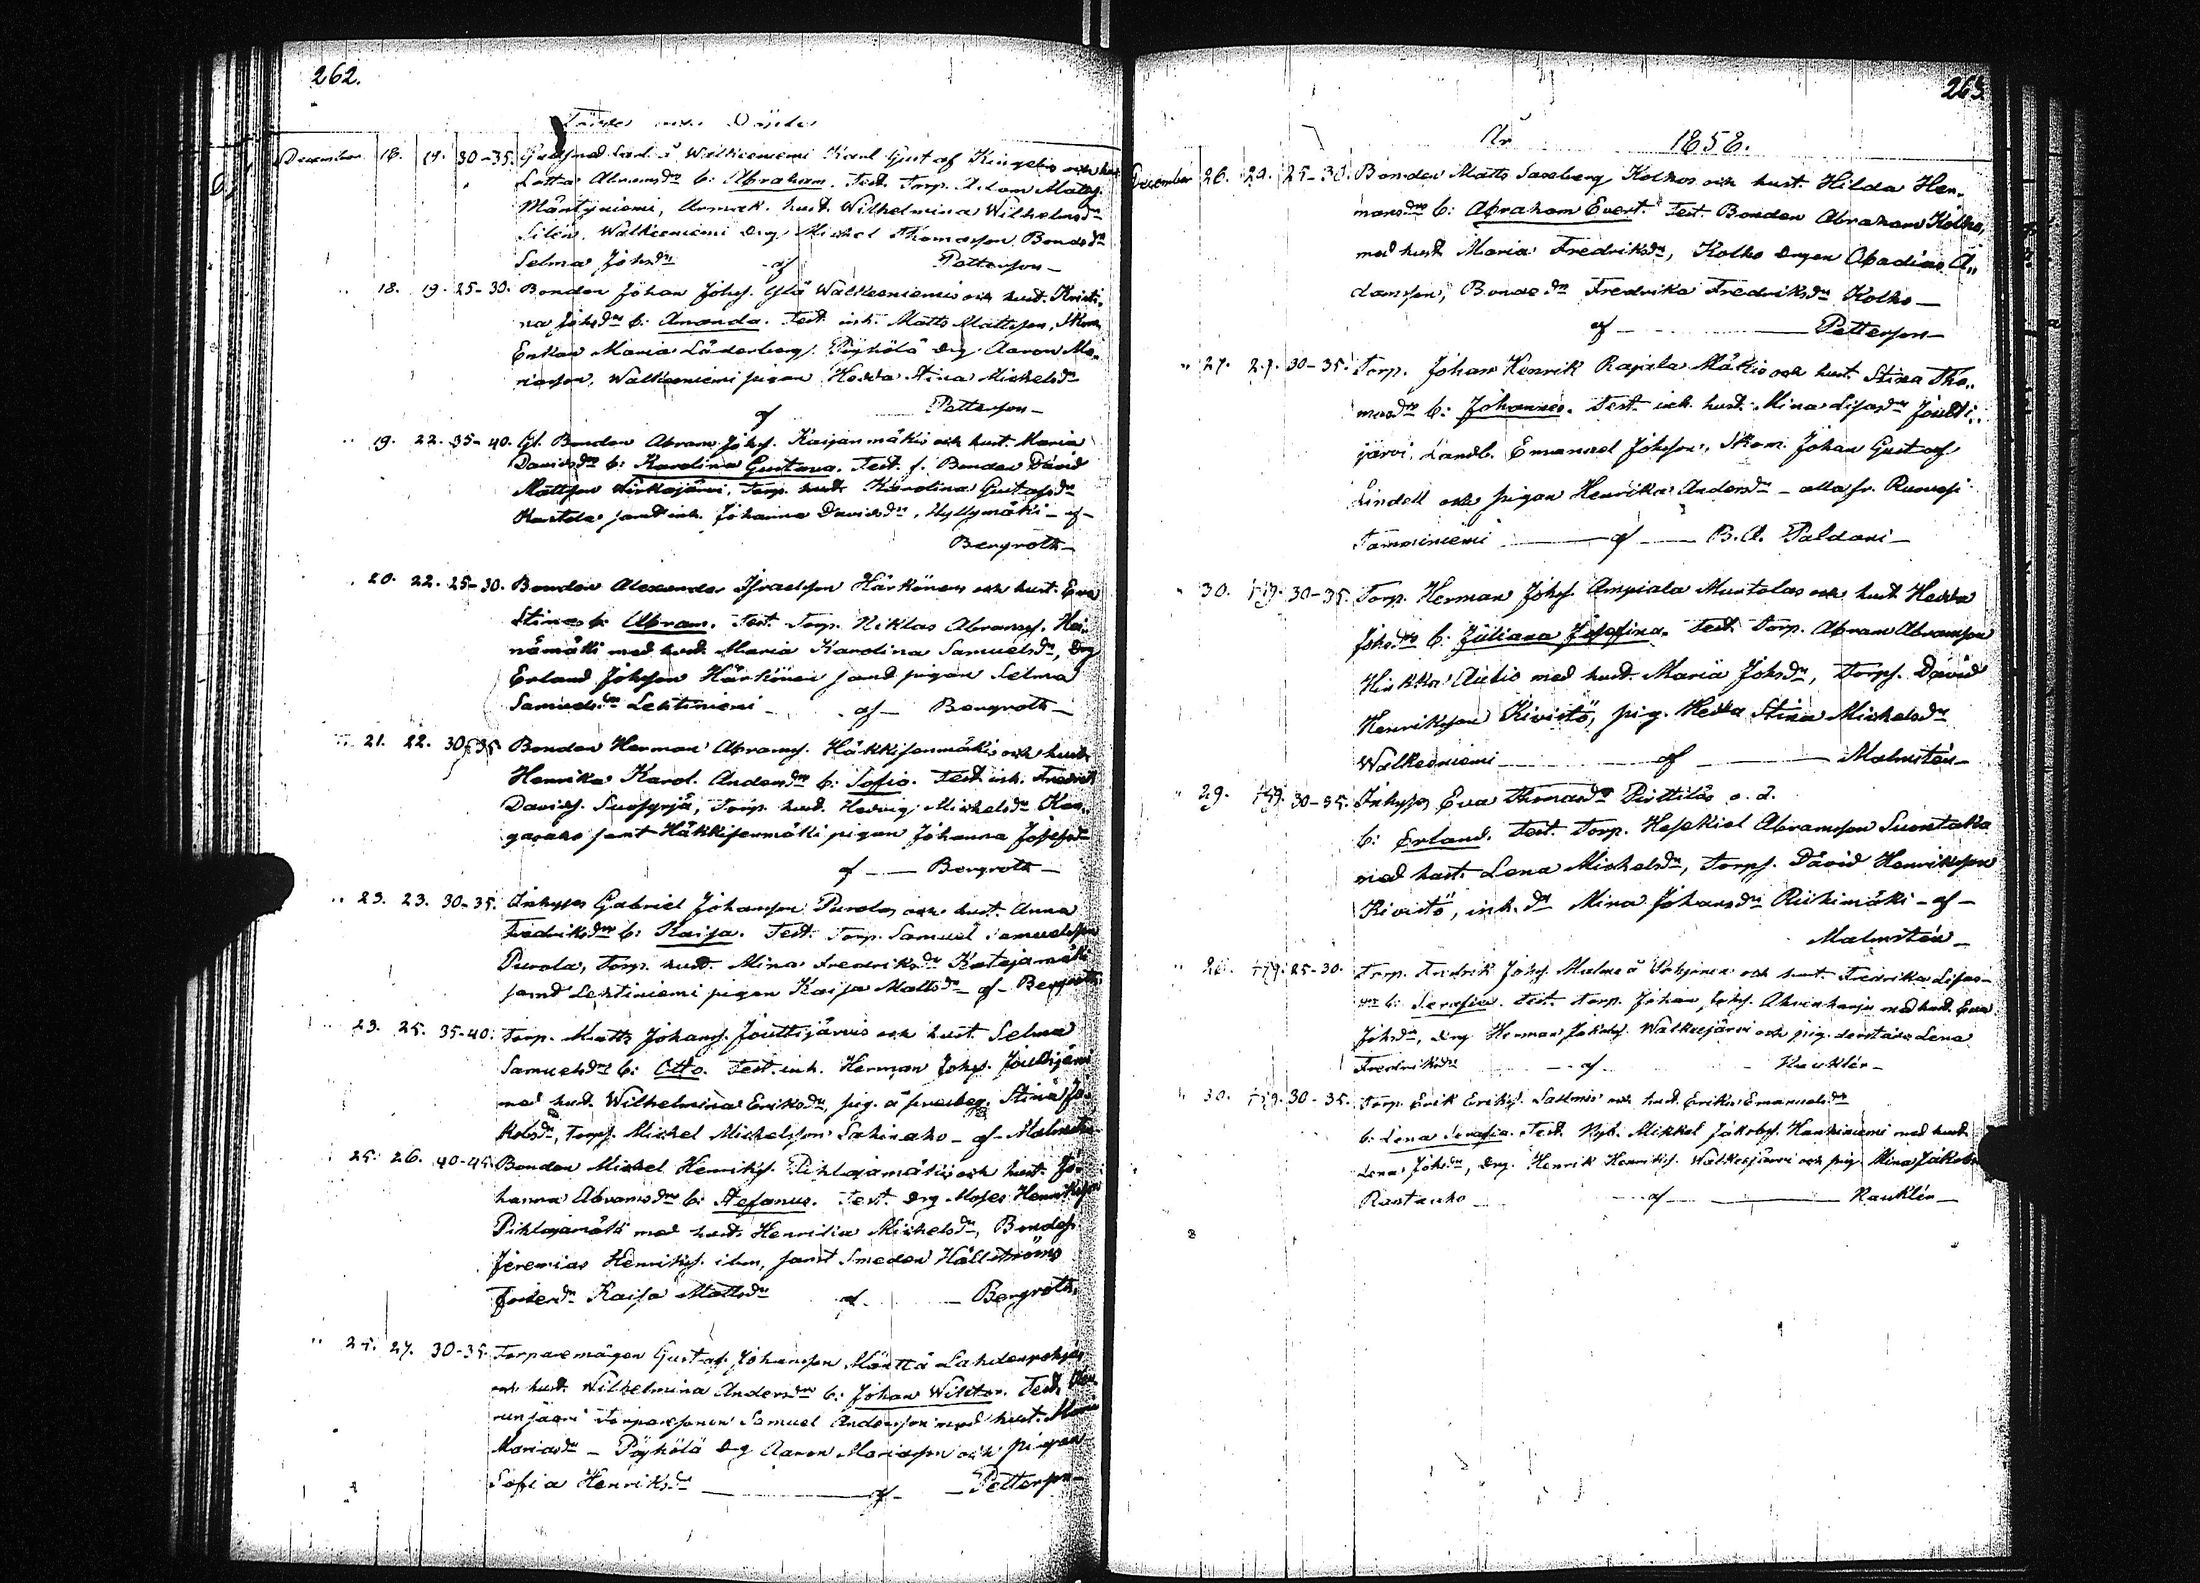 262.
Födde och Döpte
December 18. 19. 30-35. Carl å Walkeeniemi Karl Gustaf Kingelin och hust.
Lotta Abramsdr b: Abraham. Test. Torp. Adam Matss.
Mäntyniemi, hust. Wilhelmina Wilhelmsdr
Silén, Walkeeniemi drg Michel Thomasson, Bondedr
Selma Johsdr af Petterson
" 18. 19. 25-30. Bonden Johan Johss. Ylä Walkeeniemi och hust. Kristi-
na Johsdr b: Amanda. Test. inh. Matts Mattsson, Skom.
Enkan Maria Läderberg. Pöyhölä drg Aaron Ma-
riasson, Walkeeniemi pigan Hedda Stina Michelsdr
af Petterson
" 19. 22. 35-40. Gl. Bonden Abram Johss. Kaijanmäki och hust. Maria
Davidsdr b: Karolina Gustava. Test. f. Bonden David
Mattsson Wirkajärvi, Torp. hust. Karolina Gustafsdr
samt inh. Johanna Davidsdr, Myllymäki - af -
Bergroth
" 20. 22. 25-30. Bonden Alexander Israelsson Härkönen och hust. Eva
Stina b: Abram. Test. Torp. Niklas Abramss. Hei-
nämäki med hust. Maria Karolina Samuelsdr, drg
Erland Johsson Härkönen samt pigan Selma
Samuelsdr Lehtiniemi - af - Bergroth
" 21. 22. 30-35 Bonden Herman Abramss. Häkkisenmäki och hust.
Henrika Karol. Andersdr b: Sofia. Test. inh. Fredrik
Davidss. Suosyrjä, Torp. hust. Hedvig Michelsdr Kan-
gasaho samt Häkkisenmäki pigan Johanna Josefsdr
af Bergroth
" 23. 23. 30-35. Inhyses Gabriel Johansson Purola och hust. Anna
Fredriksdr b: Kaisa. Test. Torp. Samuel Samuelsson
Purola, Torp. hust. Mina Fredriksdr Katajamäki
samt Lehtiniemi pigan Kaisa Mattsdr - af - Bergroth
23. 25. 35-40. Torp. Matts Johanss. Jouttijärvi och hust. Selma
Samuelsdr b: Otto. Test. inh. Herman Johss. Jouttijärvi
med hust. Wilhelmina Eriksdr, pig. å Stina Ja-
kobsdr, Torps. Michel Michelsson Sahinaho - af - Malmstén
25. 26. 40-45 Bonden Michel Henrikss. Pihlajamäki och hust. Jo-
hanna Abramsdr b: Stefanus. Test. drg Moses Henriksson
Pihlajamäki med hust. Henrika Michelsdr, Bondes.
Jeremias Henrikss. ibm, samt Smeden Hällströms
Fosterdr Kaisa Mattsdr af Bergroth
" 25. 27. 30-35. Torparemågen Gustaf Johansson Lahdenpohja
och hust. Wilhelmina Andersdr b: Johan Wiktor. Test.
Torparesonen Samuel Andersson med hust. Maria
Mariasdr - Pöyhölä drg Aaron Mariasson och pigan
Sofia Henriksdr af Petterson
263.
År 1858.
December 26. 29. 25-30. Bonden Matts Saxberg Kolho och hust. Hilda Her-
mansdr b: Abraham Evert. Test. Bonden Abraham Kolho,
med hust. Maria Fredriksdr, Kolho drgen Abadias A-
damsson, Bonde dr Fredrika Fredriksdr Kolho
af Petterson
" 27. 29. 30-35. Torp. Johan Henrik Rajala Mäki och hust. Stina Tho-
masdr b: Johannes. Test. inh. hust. Mina Lisasdr Joutti-
järvi, Landb. Emanuel Johsson, Skom. Johan Gustaf
Lindell och pigan Henrika Andersdr - alla fr. Ruovesi
Tamminiemi af B. A. Paldani
" 30. 1/1 59. 30-35. Torp. Herman Johss. Ampiala Mustola och hust. Hedda
Johsdr b: Juliana Josefina. Test. Torp. Abram Abramsson
Hinkka Autio med hust. Maria Johsdr, Torps. David
Henriksson Kivistö, pig. Hedda Stina Michelsdr
Walkeeniemi af Malmstén
" 29. 30-35. Inhyses Eva Thomasdr Pirttilä o. ä.
b: Erland. Test. Torp. Hesekiel Abramsson Suontakа
med hust. Lena Michelsdr, Torps. David Henriksson
Kivistö, inh. dr Mina Johansdr Riihimäki - af -
Malmstén
" 26. 25-30. Torp. Fredrik Johss. Pohjonen och hust. Fredrika Lisas-
dr b: Serafia. Test. Torp. Johan Johss. Ahvenharju med hust. Eva
Johsdr, drg Herman Jakobss. Walkeejärvi och pig. Lena
Fredriksdr af Nauklér
" 30. 30-35. Torp. Erik Erikss. Salmi och hust. Erika Emanuelsdr
b: Lena Serafia. Test. Nyb. Mikkel Jakobss. Hankaniemi med hust.
Lena Johsdr, drg. Henrik Henrikss. Walkeejärvi och pig Mina Jakobsdr
Rantaaho af Nauklér